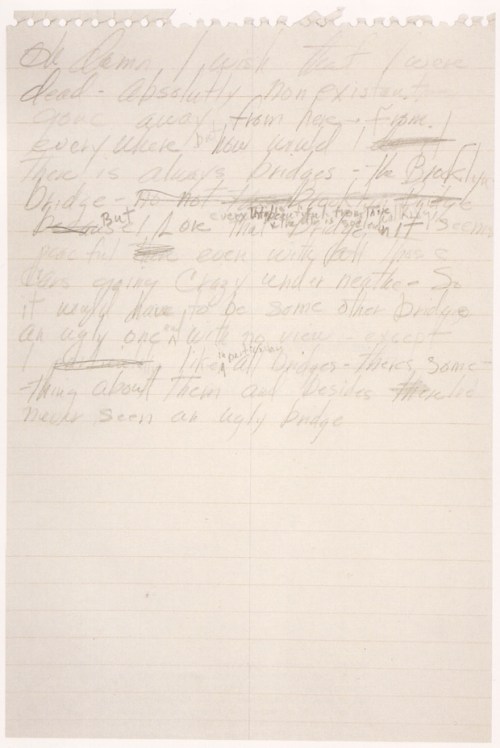 Oh damn I wish that I were
dead - absolutly nonexistent -
gone away from here - from
everywhere but how would I
There is always bridges - the Brooklyn
bridge
But I Love that bridge everything is beautiful from there it seems
peaceful even with all those
cars going crazy under neathe - So
it would have to be some other bridge
an ugly one and with no view - except
I like in particular all bridges - theres some-
-thing about them and besides Ive
never seen an ugly bridge